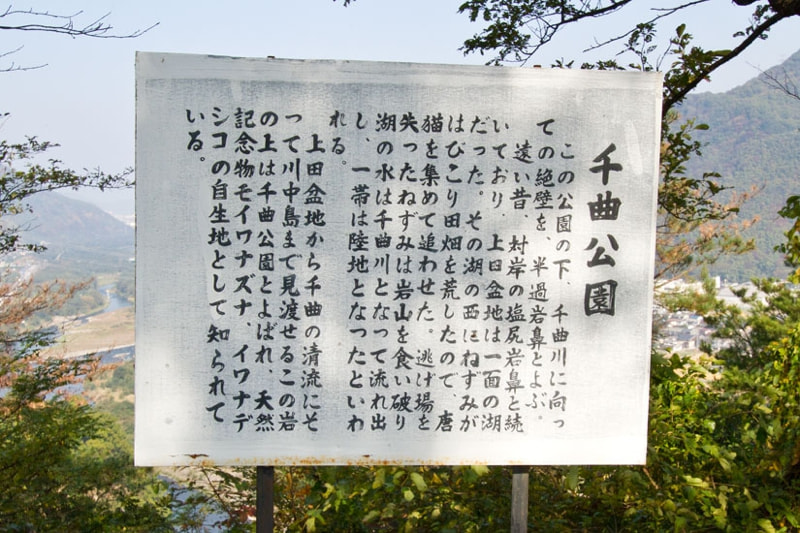 千曲公園
この公園の下、千曲川に向っ
ての絶壁を、半過岩鼻とよぶ。
遠い昔、対岸の塩尻岩鼻と続
いており、上田盆地は一面の湖
だった。その湖の西にねずみが
はびこり田畑を荒したので、唐
猫を集めて追わせた。逃げ場を
失ったねずみは岩山を食い破り
湖の水は千曲川となって流れ出
し、一帯は陸地となったといわ
れる。
上田盆地から千曲の清流にそ
って川中島まで見渡せるこの岩
の上は千曲公園とよばれ、天然
記念物モイワナズナ、イワナデ
シコの自生地として知られて
いる。